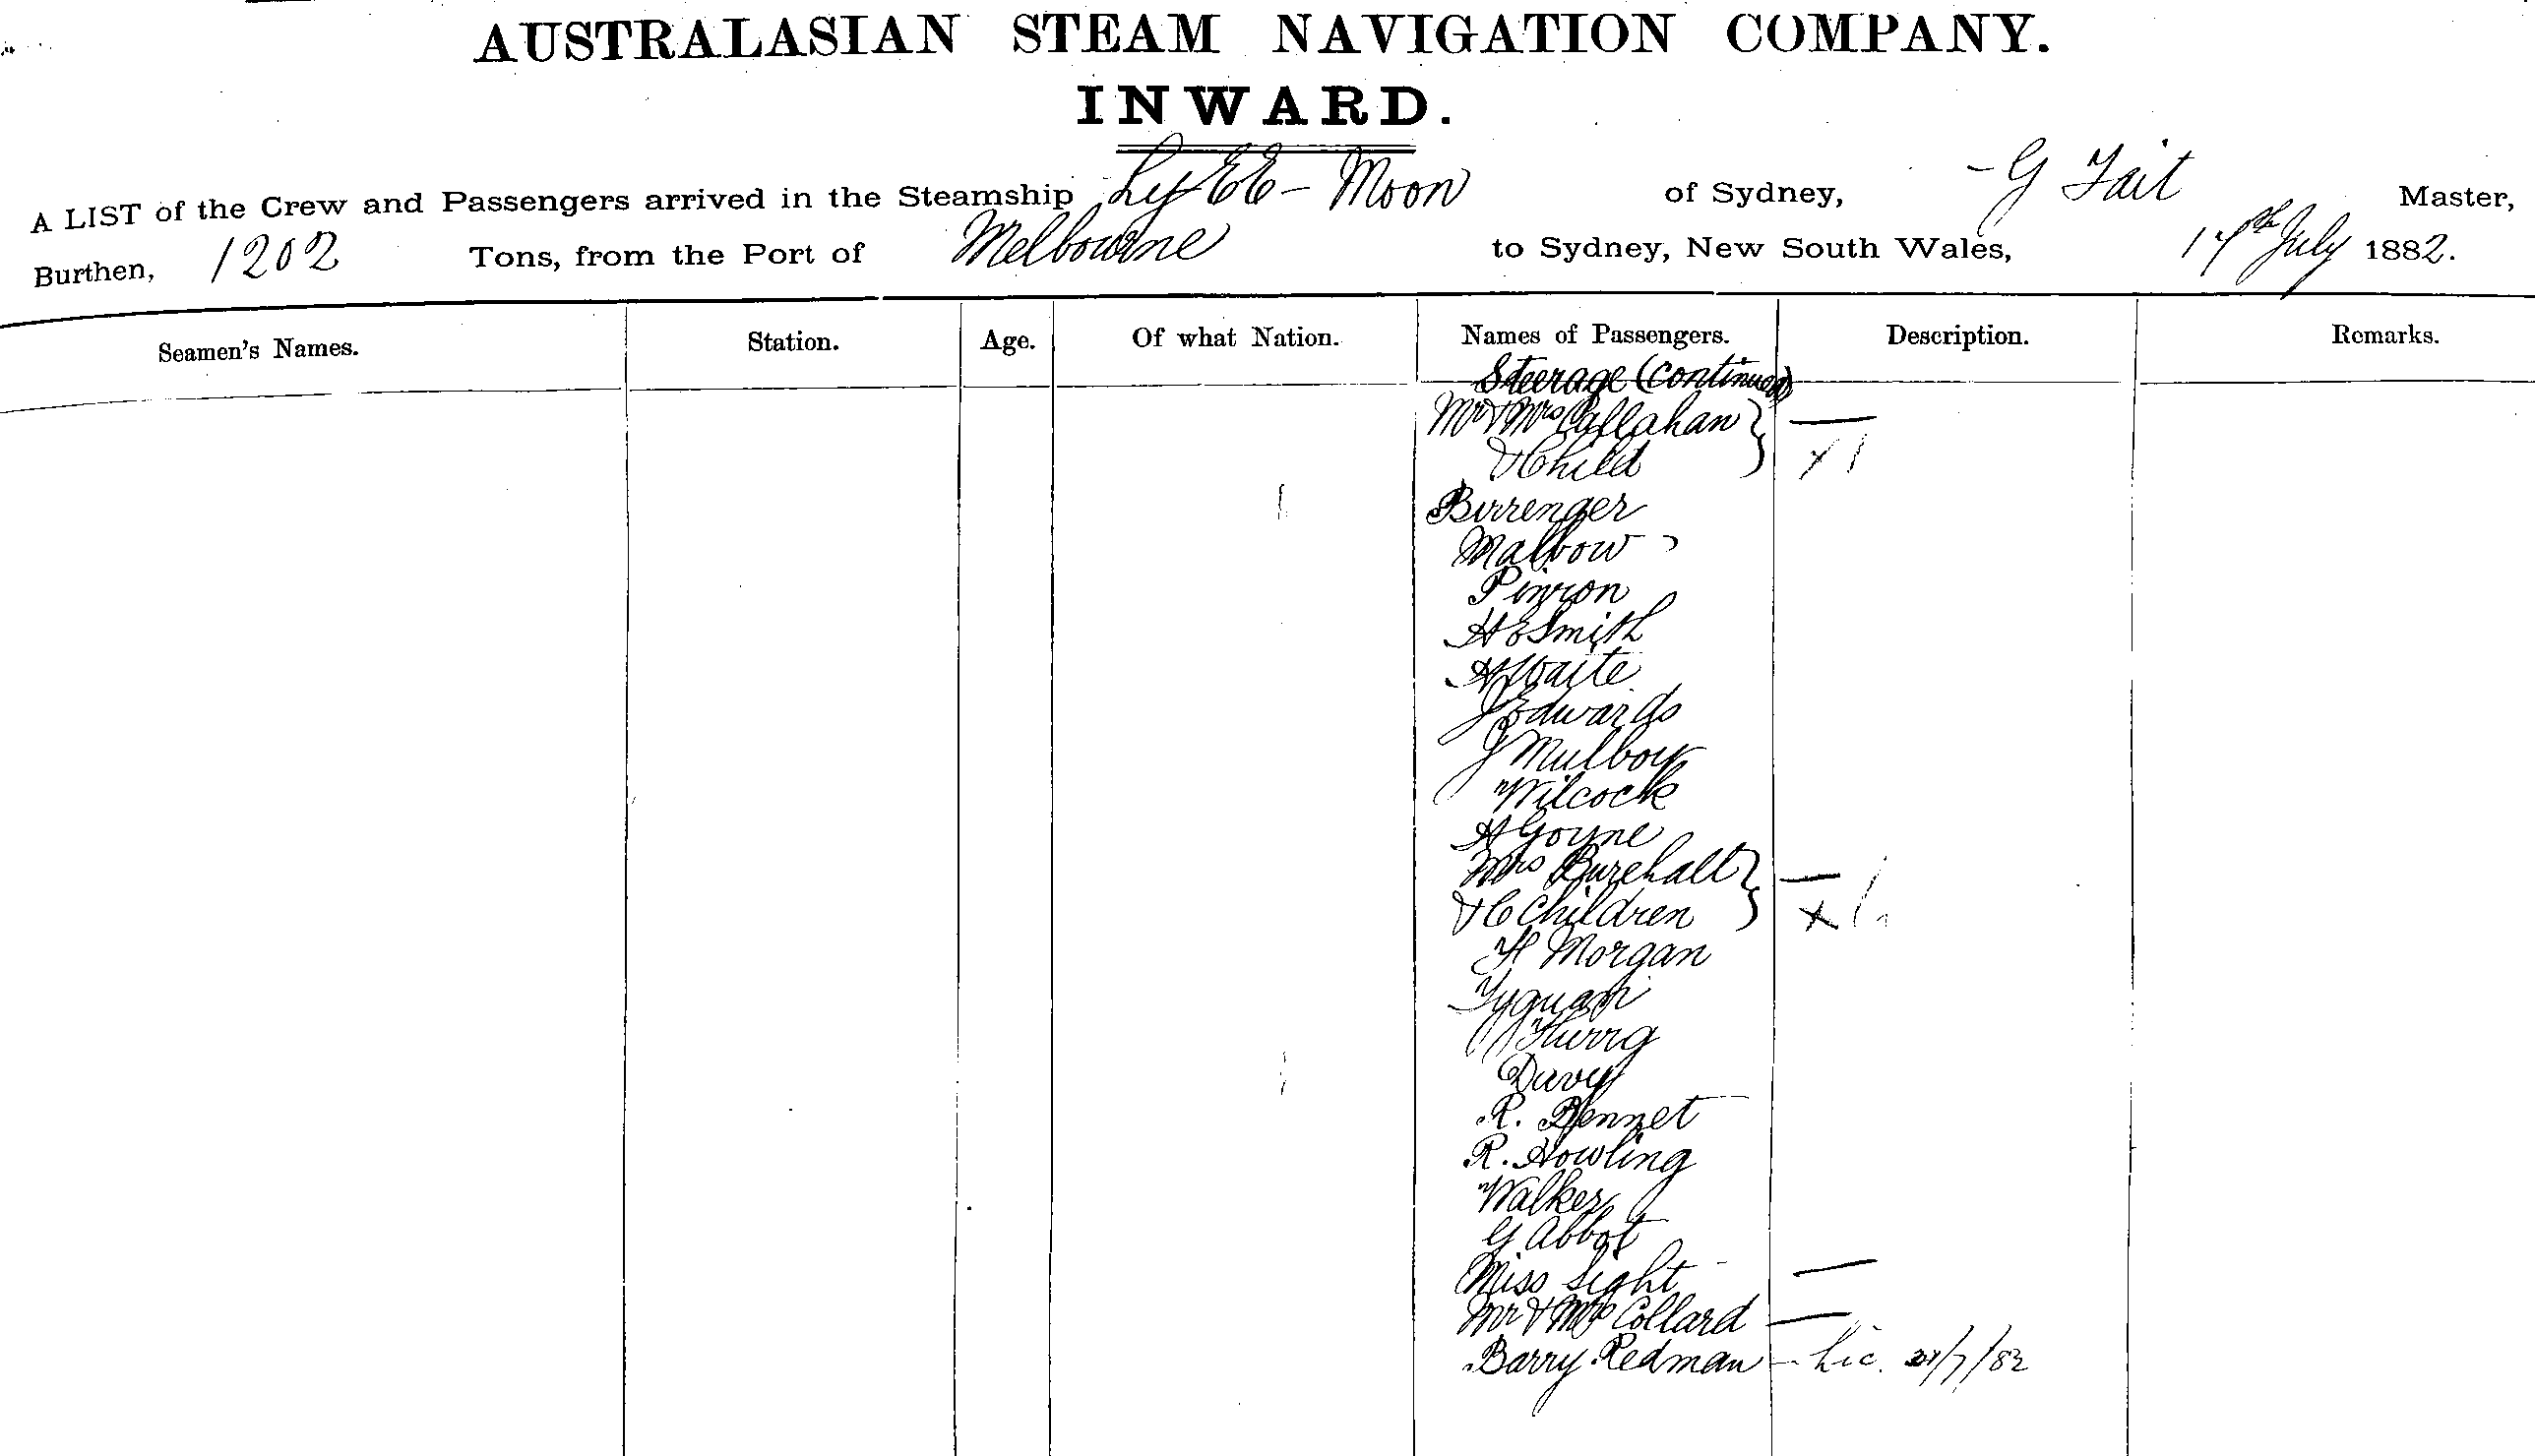 AUSTRALASIAN STEAM NAVIGATION COMPANY.
INWARD.
A LIST of the Crew and Passengers arrived in the Steamship Ly EE - Moon of Sydney, G Tait Master,
Burthen, 1202 Tons, from the Port of Melbourne to Sydney, New South Wales, 17th July 1882.
Seamen's Names. Station. Age. Of what Nation. Names of Passengers. Description. Remarks.
Steerage (Continued)
Mr & Mrs Callahan
& Child x 1
Birrenger
Malbow
H E Smith
H Waite
J Edwards
J Mulboy
Wilcock
H Goyne
Mrs Burchall
& Children x
H Morgan
Davy
R. Bennet
R. Howling
Walker
G Abbot
Miss Light
Mr & Mrs Collard
Barry Redman - Lic. /7/82